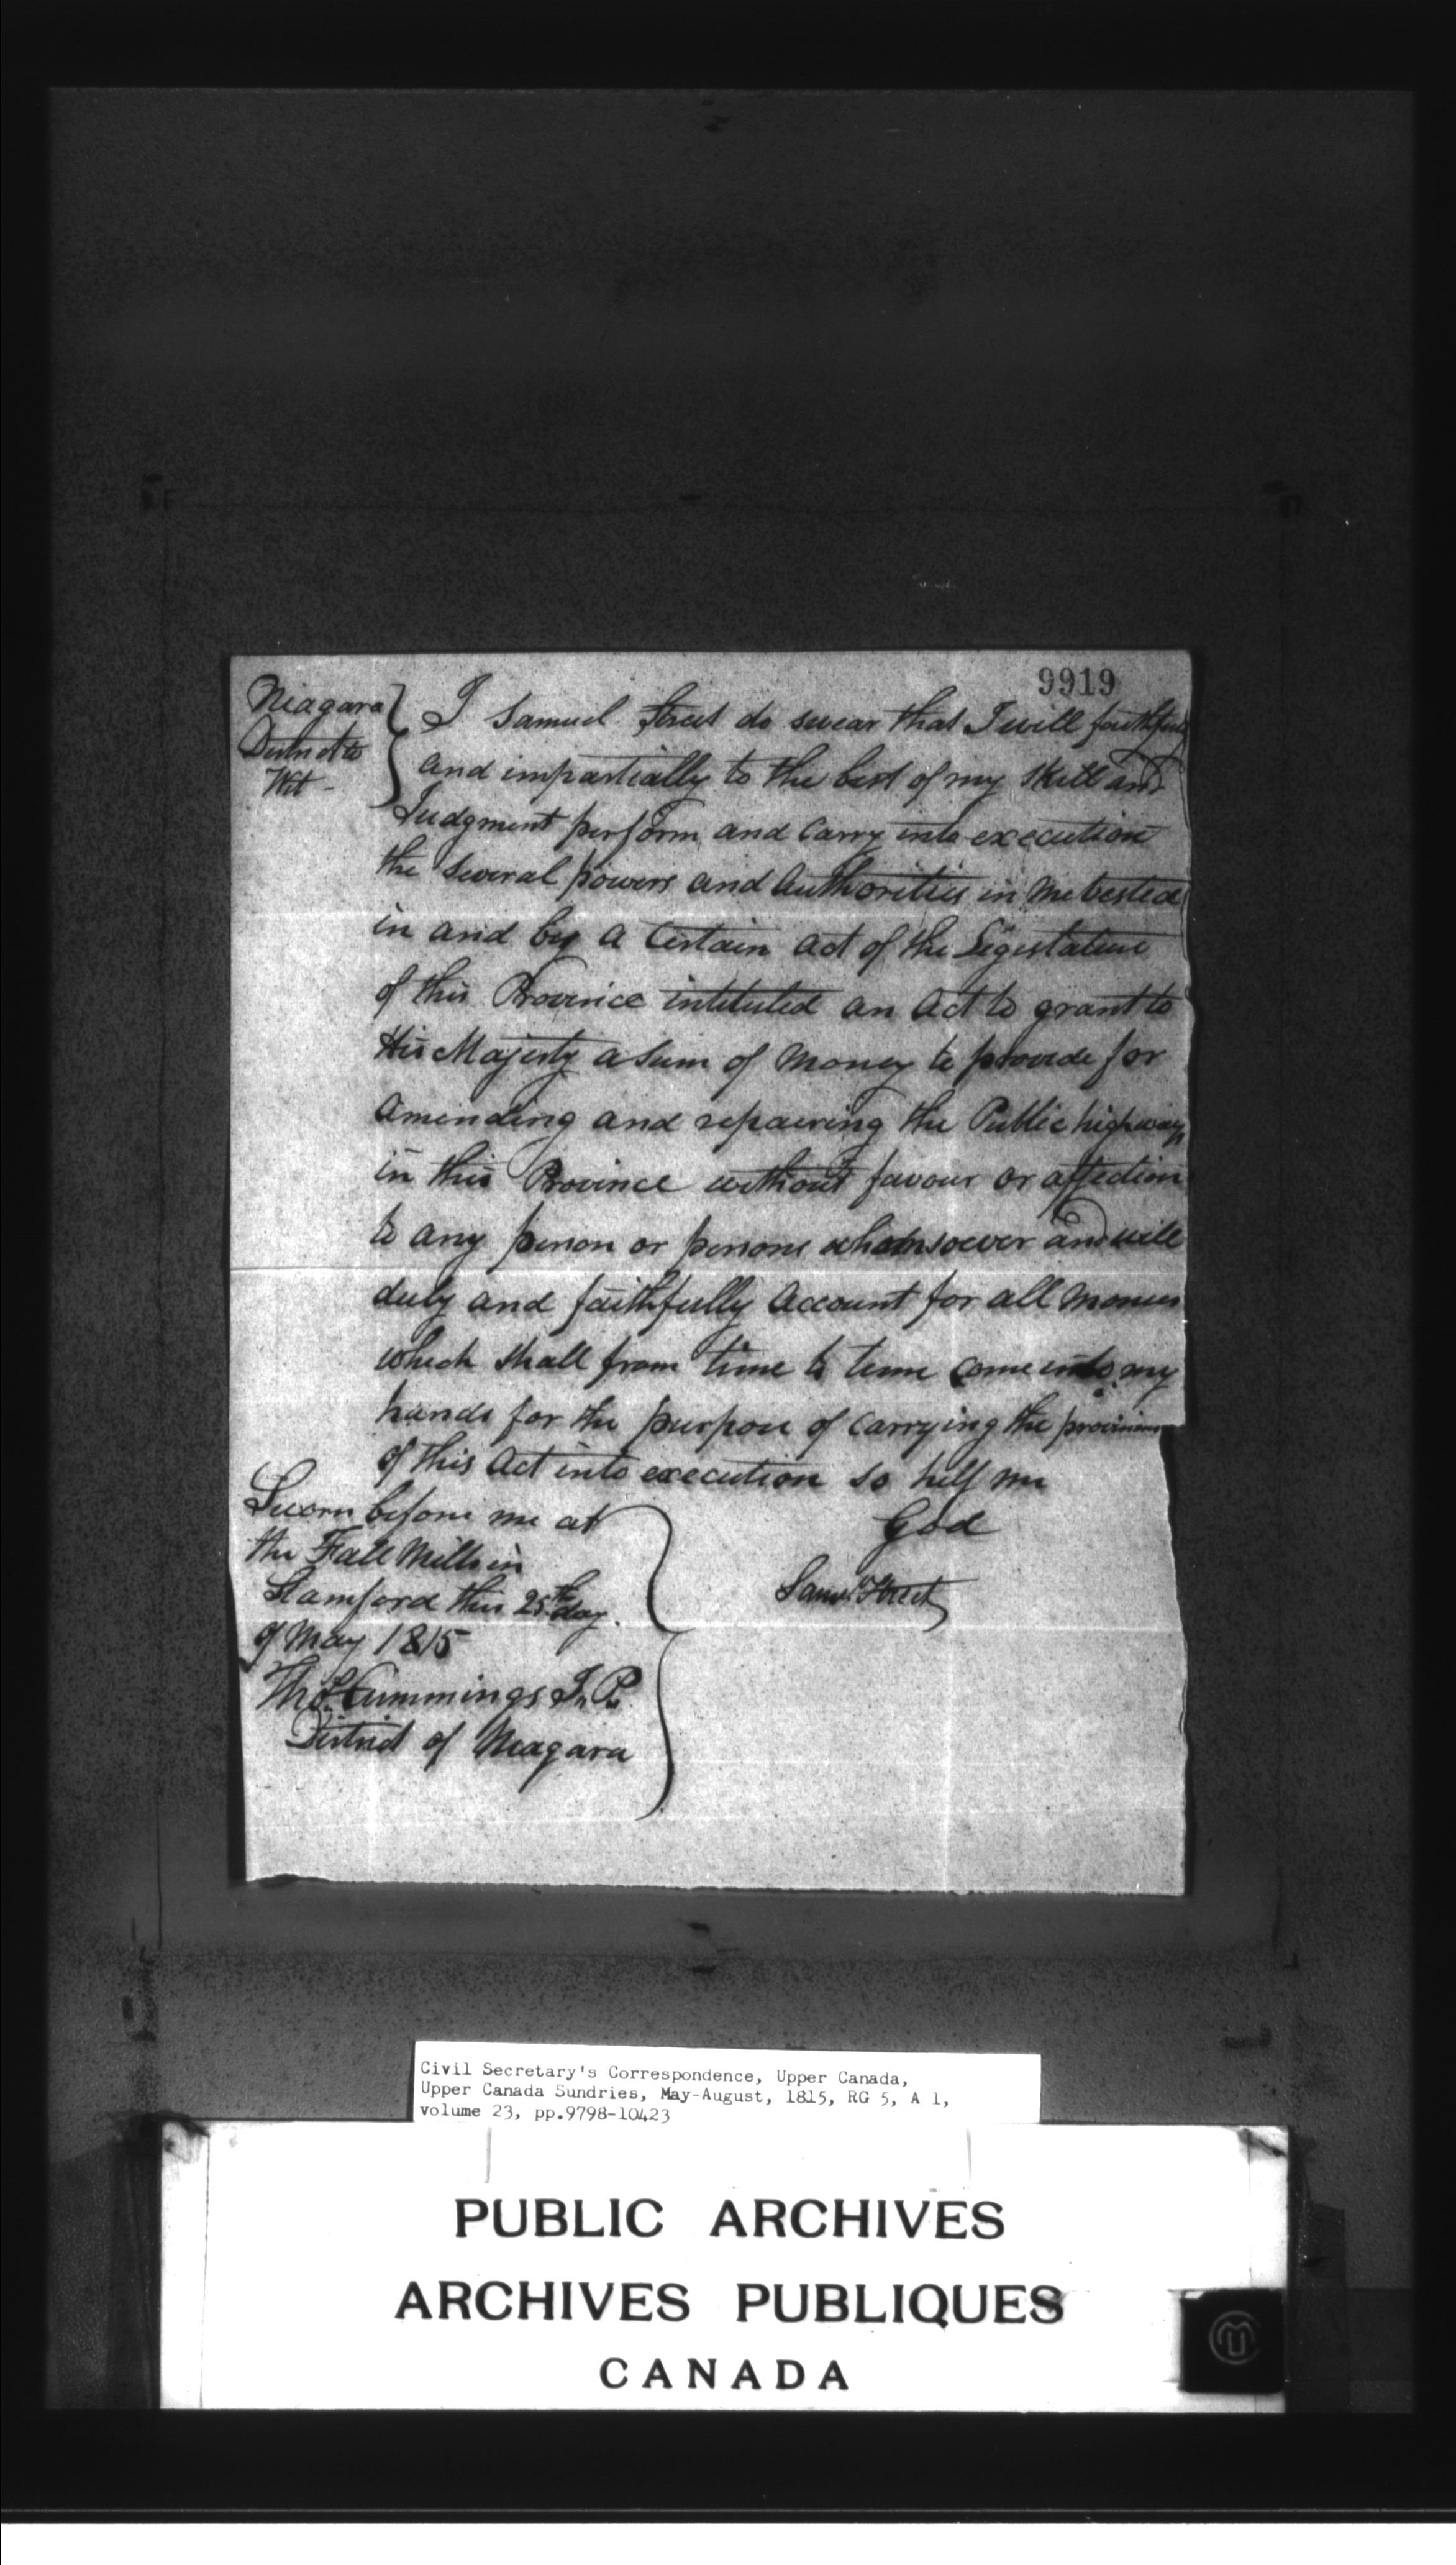 9919
Niagara
District to
Wit -
I Samuel Street do swear that I will faithfully
and impartially to the best of my Skill and
Judgment perform and Carry into execution
the Several powers and Authorities in me vested
in and by a Certain Act of the Legislature
of this Province intituled an Act to grant to
His Majesty a Sum of Money to provide for
Amending and repairing the Public highways
in this Province without favour or affection
to any person or persons whomsoever and will
duly and faithfully Account for all Monies
which shall from time to time come into my
hands for the purpose of Carrying the provisions
of this Act into execution so help me
God
Saml. Street
Sworn before me at
the Fall Mills in
Stamford this 25th day
of May 1815
Thos. Cummings J. P.
District of Niagara
Civil Secretary's Correspondence, Upper Canada,
Upper Canada Sundries, May-August, 1815, RG 5, A 1,
volume 23, pp.9798-10423
PUBLIC ARCHIVES
ARCHIVES PUBLIQUES
CANADA